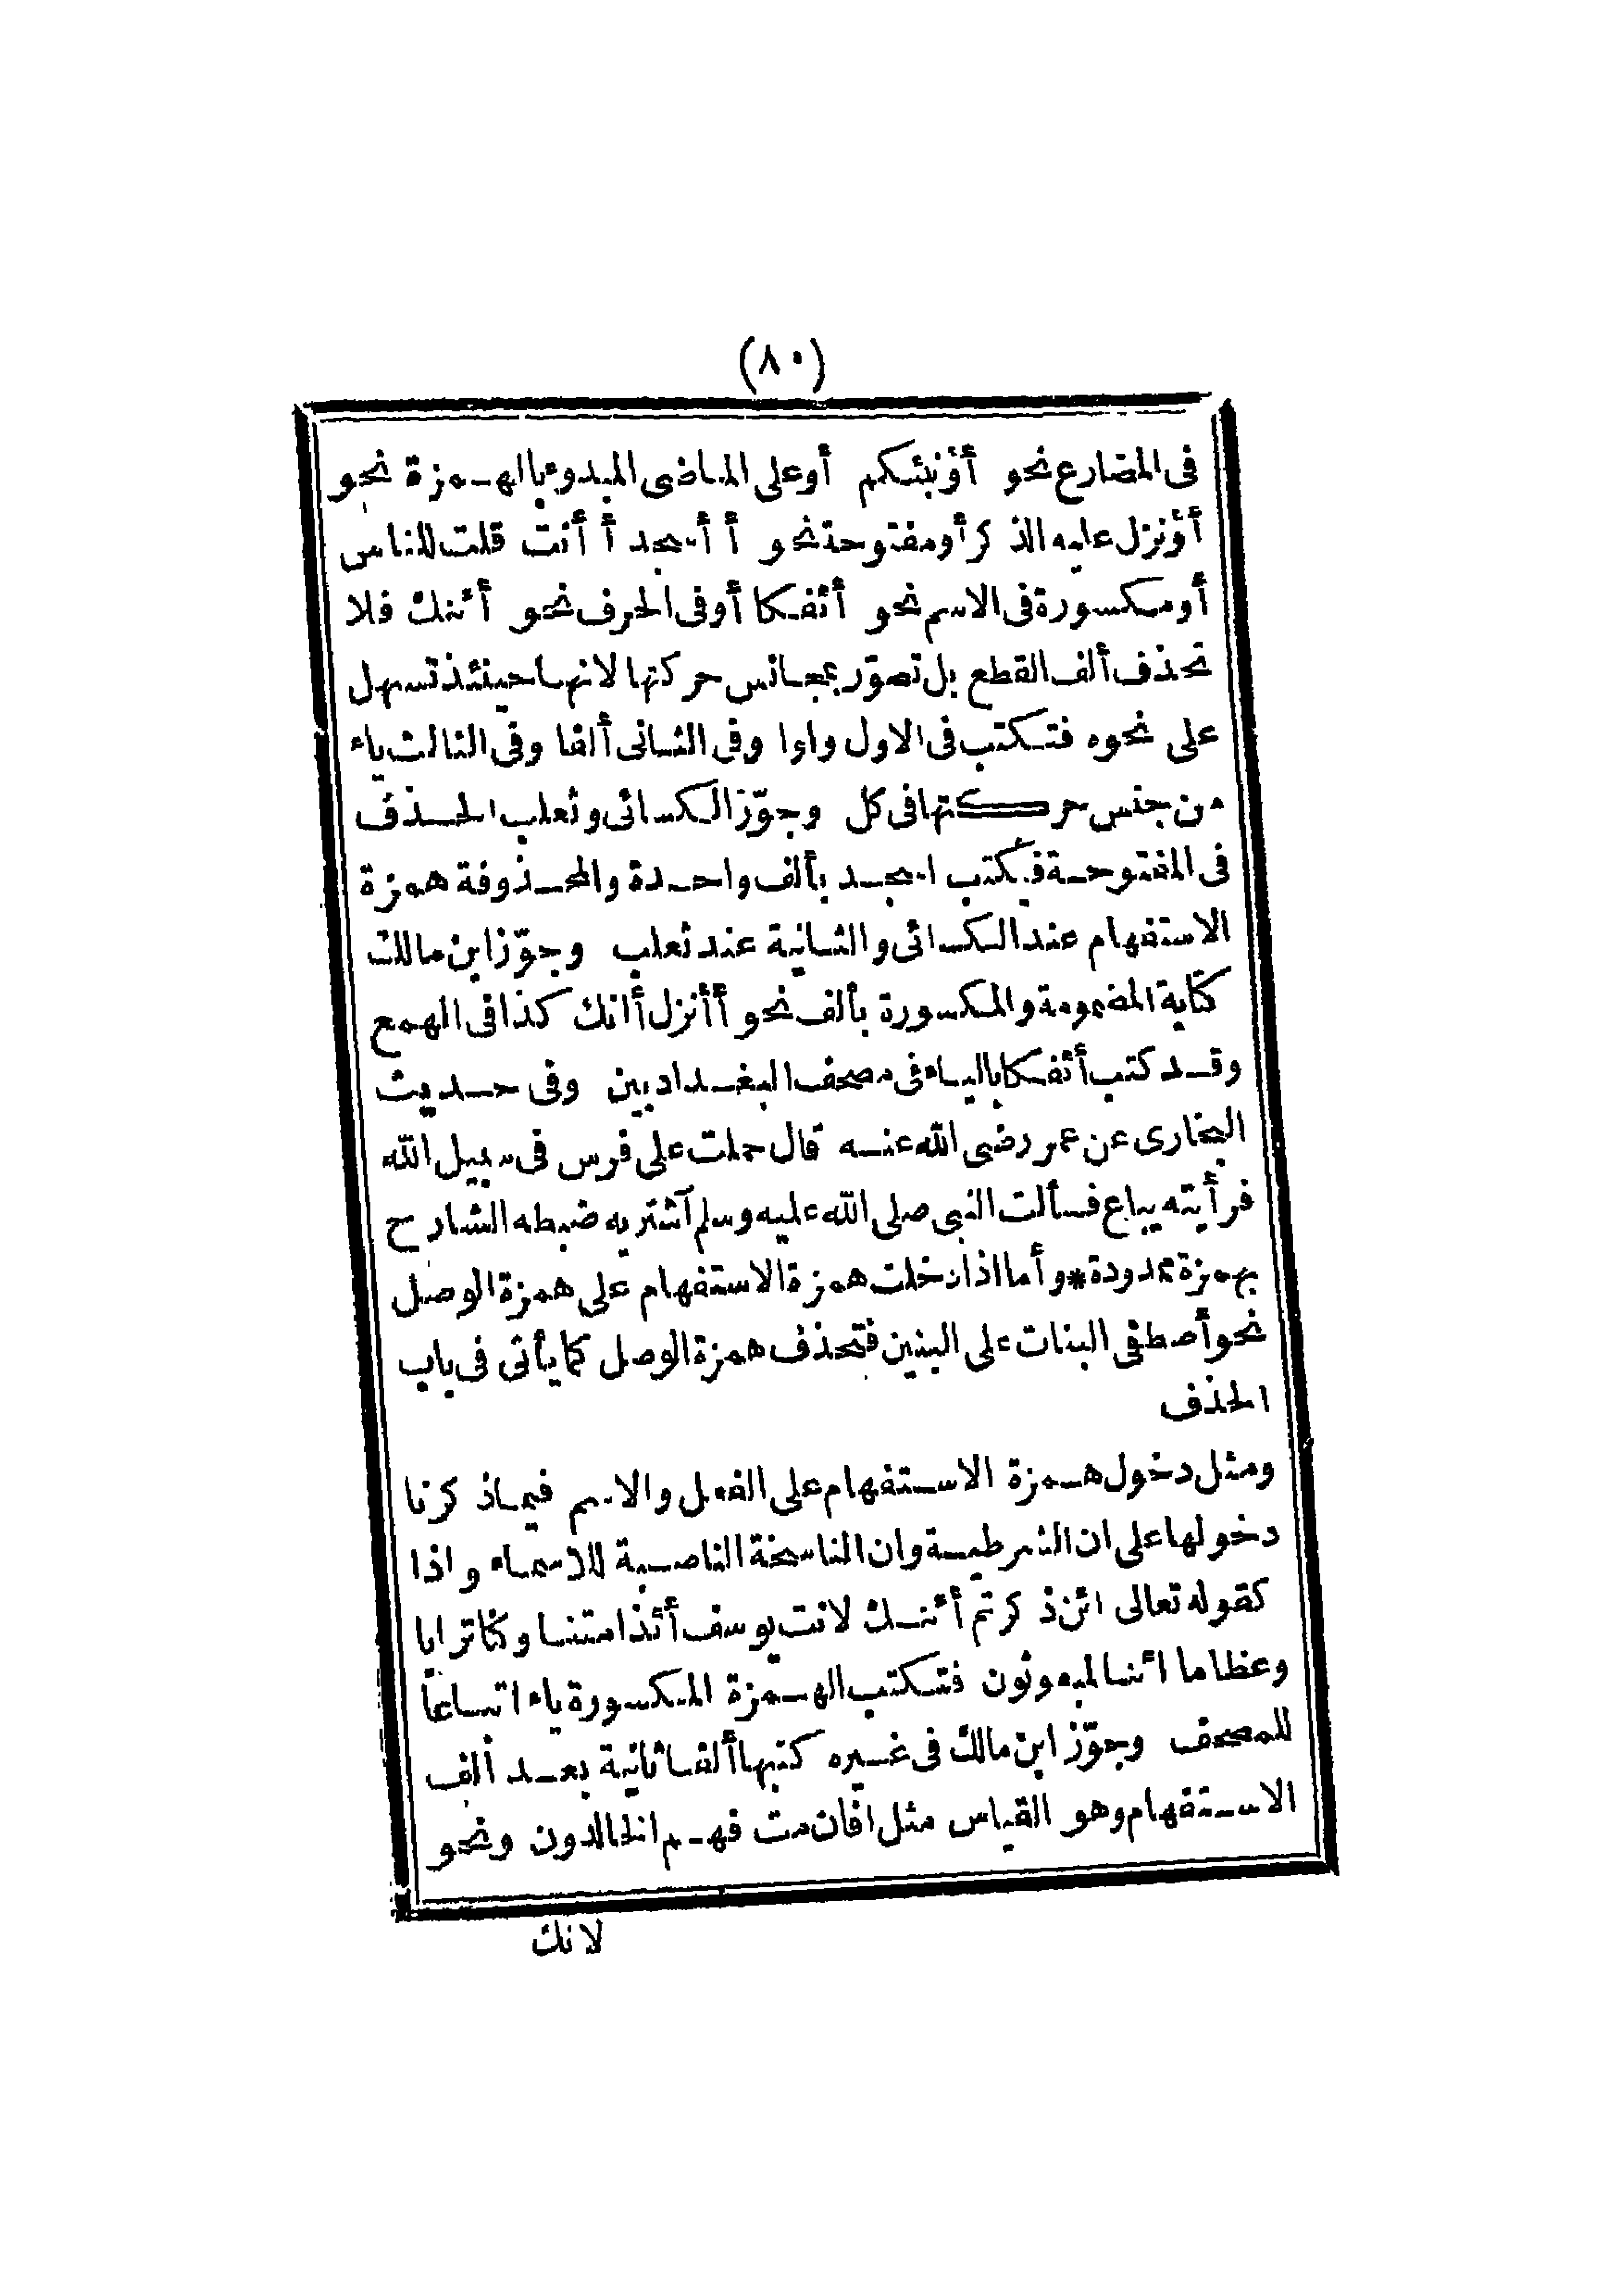 (٨٠)
فى المضارع نحو أؤنبئكم أو على الماضى المبدوء بالهمزة نحو
أؤنزل عليه الذكر أو مفتوحة نحو أأسجد أأنت قلت للناس
أو مكسورة فى الاسم نحو أئفكا أو فى الحرف نحو أئنك فلا
تحذف ألف القطع بل تصوّر بمجانس حركتها لانها حينئذ تسهل
على نحوه فتكتب فى الاول واوا وفى الثانى ألفا وفى الثالث ياء
من جنس حركتها فى كل وجوّز الكسائى وثعلب الحذف
فى المفتوحة فيكتب اسجد بألف واحدة والمحذوفة همزة
الاستفهام عند الكسائى والثانية عند ثعلب وجوّز ابن مالك
كتابة المضمومة والمكسورة بألف نحو أأنزل أانك كذا فى الهمع
وقد كتب أئفكا بالياء فى مصحف البغداديين وفى حديث
البخارى عن عمر رضى الله عنه قال حملت على فرس فى سبيل الله
فرأيته يباع فسألت النبى صلى الله عليه وسلم آشتريه ضبطه الشارح
بهمزة ممدودة * وأما اذا دخلت همزة الاستفهام على همزة الوصل
نحو أصطفى البنات على البنين فتحذف همزة الوصل كما يأتى فى باب
الحذف
ومثل دخول همزة الاستفهام على الفعل والاسم فيما ذكرنا
دخولها على ان الشرطية وان الناسخة الناصبة للاسماء واذا
كقوله تعالى ائن ذكرتم أئنك لانت يوسف أئذا متنا وكنا ترابا
وعظاما ائنا لمبعوثون فتكتب الهمزة المكسورة ياء اتباعا
للمصحف وجوّز ابن مالك فى غيره كتبها ألفا ثانية بعد ألف
الاستفهام وهو القياس مثل افان مت فهم الخالدون ونحو
لانك